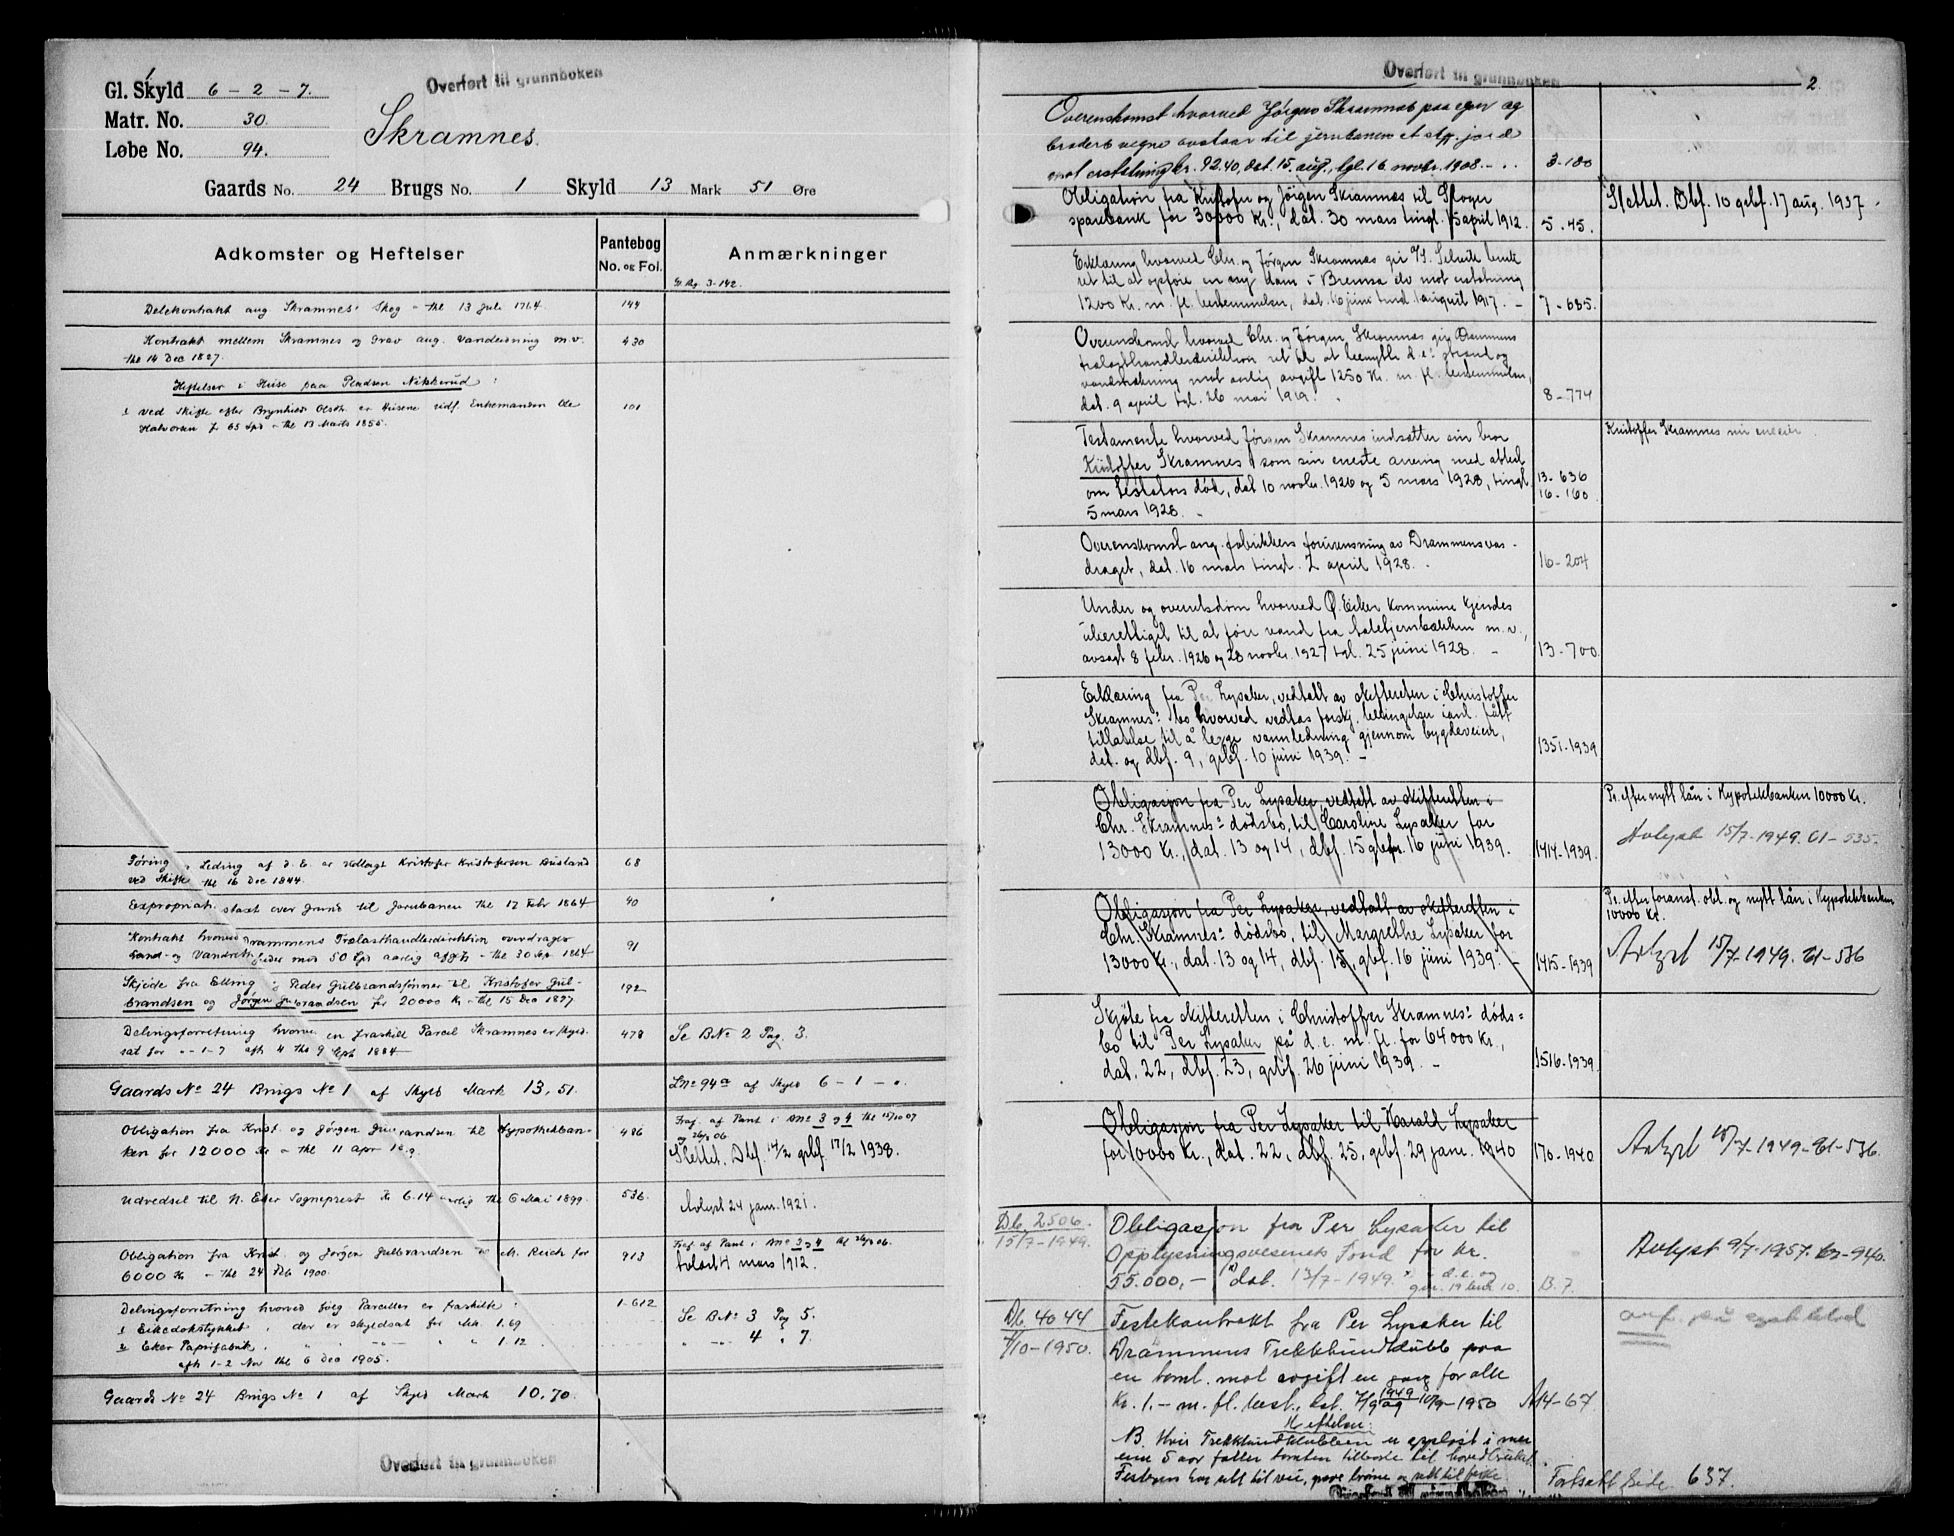 Overført til grunnboken
Gl. Skyld 6 - 2 - 7.
Matr. No. 30.
Løbe No. 94.
Skramnes.
Gaards No. 24 Brugs No. 1 Skyld 13 Mark 51 Øre
Adkomster og Heftelser
Pantebog
No. og Fol.
Anmærkninger
3-142.
Delekontrakt ang Skramnes' Skog - thl 13 Juli 1764. 144
Kontrakt mellem Skramnes og Grav ang. Vandledning m.v. 430
thl 14 Dec 1827.
Heftelser i Huse paa Pladsen Nikkerud:
1 Ved Skifte efter Brynhild Olsdtr. er Husene udl. Enkemanden Ole 101
Halvorsen for 65 Spd - thl 13 Marts 1855.
Tøring Leding af d. E. er vedlagt Kristofer Kristofersen Husland 68
ved Skifte thl 16 Dec 1844.
Expropriat. staxt over Grund til Jernbanen thl 17 Febr 1864 40
Kontrakt hvorved Drammens Trælasthandlerdirektion overdrages 91
Land- og Vandret heder mod 50 Spd aarlig afgft - thl 30 Sep 1864
Skjøde fra Elling Peder Gulbrandsønner til Kristofer Gul- 192
brandsen og Jørgen Gulbrandsen for 20000 Kr - thl 15 Dec 1877
Delingsforretning hvorved en fraskilt Parcel Skramnes er skyld- 478 Se B No 2 Pag. 3.
sat for - 1 - 7 afh 4 thl 9 Sept 1884
Gaards No 24 Brugs No 1 af Skyld Mark 13,51. Lno 94a af Skyld 6 - 1 -
Obligation fra Krist. og Jørgen Gulbrandsen til Hypothekban- 486 Fraf. af Pant i Bno 3 og 4 thl 15/10 07
ken for 12000 Kr - thl 11 Apr
Slettet. Dbf. 14/2 grbf. 17/2 1938.
Udvedsel til N. Eker Sogneprest Kr 6.14 aarlig thl 6 Mai 1899. 536. Avlyst 24 janr. 1921.
Obligation fra Krist. og Jørgen Gulbrandsen til M. Reich for 913 Fraf. af Pant i Bno 3 og 4
6000 Kr - thl 24 Feb 1900. Avlyst 4 mars 1912.
Delingsforretning hvorved følg Parceller er fraskilte: 1-612
1 Eikedokstykket, der er skyldsat for Mk 1.69 Se B No 3 Pag 5.
2 Eker Papirfabrik, " " " " 1.12 " " 4 " 7.
afh 1-2 Nov thl 6 Dec 1905.
Gaards No 24 Brugs No 1 af Skyld Mark 10,70.
Overført til grunnboken
Overført til grunnboken
2.
Overenskomst hvorved Jørgen Skramnes paa egen og
broders vegne avstaar til jernbanen et stk. jord
mot erstatning kr. 92.40, dat. 15. aug., tgl. 16 novbr. 1908. - 3-180
Obligation fra Kristofer og Jörgen Skramnes til Stoger
sparebank for 30000 Kr., dat. 30 mars tingl. 15 april 1912. 5-45. Slettet. Dbf. 10 grbf. 17 aug. 1937.
Erklæring hvorved Chr. og Jørgen Skramnes gir A/S. Selvik bruk
ret til at opføre en ny dam i Bremsa elv mot erstatning
1200 Kr. m. fl. bestemmelser, dat. 16 juni tingl. 1 august 1917. - 7-685.
Overenskomst hvorved Chr. og Jørgen Skramnes gir Drammens
trælasthandlerdirektion ret til at benytte d.e.s strand og
vandstrækning mot aarlig avgift 1250 Kr. m. fl. bestemmelser,
dat. 9 april tgl. 26 mai 1919. 8-774
Testamente hvorved Jörgen Skramnes indsætter sin bror Kristoffer Skramnes nu eneeier
Kristoffer Skramnes som sin eneste arving med attest
om testators död, dat 10 novbr. 1926 og 5 mars 1928, tingl 13-636
5 mars 1928. 16-160
Overenskomst ang. fabrikkers forurensning av Drammensvas-
draget, dat. 16 mars tingl. 2 april 1928. 16-204
Under og overretsdom hvorved Ø. Eiker kommune kjendes
uberettiget til at före vand fra m.v.,
avsagt 8 febr. 1926 og 28 novbr. 1927 tgl. 25 juni 1928. - 13-700
Erklæring fra Per Lysaker, vedtatt av skifteretten i Christoffer
Skramnes' bo hvorved vedtas forskj. betingelser i anl. fått
tillatelse til å legge vannledning gjennom bygdeveien,
dat. og dbf. 9, grbf. 10 juni 1939. - 1351-1939
Obligasjon fra Per Lysaker, vedtatt av skifteretten i Pr. efter nytt lån i Hypotekbanken 10000 kr.
Chr. Skramnes' dödsbo, til Caroline Lysaker for
13000 Kr., dat. 13 og 14, dbf. 15 grbf. 16 juni 1939. 1414-1939. Avlyst 15/7-1949. 61-535.
Obligasjon fra Per Lysaker, vedtatt av skifteretten i Pr. efter foranst. obl. og nytt lån i Hypotekbanken
10000 Kr.
Chr. Skramnes' dödsbo, til Margrethe Lysaker for
13000 Kr., dat. 13 og 14, dbf. 15, grbf. 16 juni 1939. - 1415-1939 Avlyst 15/7-1949. 61-536
Skjöte fra skifteretten i Christoffer Skramnes' döds-
bo til Per Lysaker på d.e. m. fl. for 64000 Kr.,
dat. 22, dbf. 23, grbf. 26 juni 1939. - 1516-1939
Obligasjon fra Per Lysaker til Harald Lysaker
for 10000 Kr., dat. 22, dbf. 25, grbf. 29 janr. 1940 170-1940 Avlyst 15/7-1949-61-536.
Db. 2506. Obligasjon fra Per Lysaker til
15/7-1949. Opplysningsvesenets Fond for kr. Avlyst 9/7-1957. 67-940.
55.000,- dat. 13/7-1949. d.e. og
B.7.
Db. 4044 Festekontrakt fra Per Lysaker til
7/10-1950. Drammens Trekkhundklubb paa
en tomt. mot avgift en gang for alle
Kr. 1.- m. fl. best., dat. 7/9 1949 og 18/9-1950 A14-67
Heftelser:
NB. Hvis Trekkhundklubben er opplöst i mer
enn 5 aar faller tomten tilbake til hovedbruket.
Festeren har rett til vei, grave brönn og rett til
Fortsatt side 637.
Overført til grunnboken